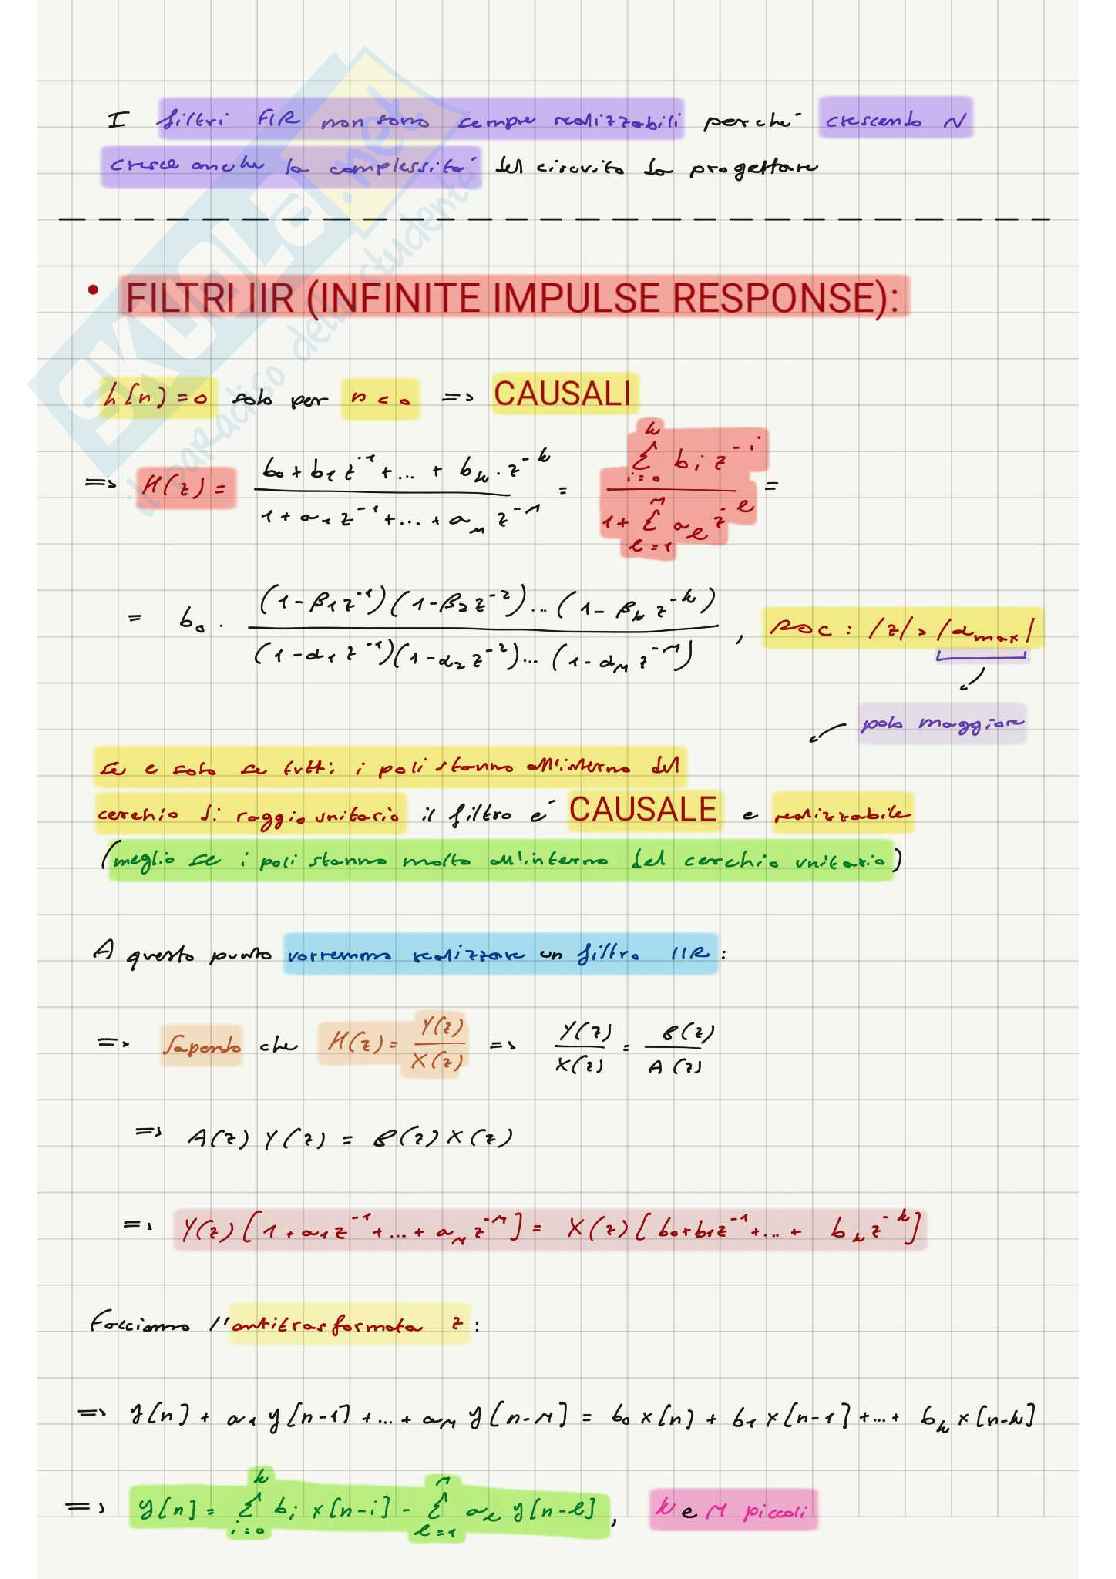 I filtri FIR non sono sempre realizzabili perché crescendo N
cresce anche la complessità del circuito da progettare
• FILTRI IIR (INFINITE IMPULSE RESPONSE):
h[n]=0 solo per n<0 => CAUSALI
=> H(z) = (b₀+b₁z⁻¹+...+b_k·z^-k)/(1+a₁z⁻¹+...+a_M z^-M) = (Σ_{i=0}^{k} b_i z^-i)/(1+Σ_{l=1}^{M} a_l z^-l) =
= b₀·((1-β₁z⁻¹)(1-β₂z⁻²)...(1-β_k z^-k))/((1-α₁z⁻¹)(1-α₂z⁻²)...(1-α_M z^-M)), ROC: |z|>|α_max|
polo maggiore
se e solo se tutti i poli stanno all'interno del
cerchio di raggio unitario il filtro è CAUSALE e realizzabile
(meglio se i poli stanno molto all'interno del cerchio unitario)
A questo punto vorremmo realizzare un filtro IIR:
=> Sapendo che H(z)=Y(z)/X(z) => Y(z)/X(z) = B(z)/A(z)
=> A(z) Y(z) = B(z) X(z)
=> Y(z)[1+a₁z⁻¹+...+a_M z^-M] = X(z)[b₀+b₁z⁻¹+...+ b_k z^-k]
Facciamo l'antitrasformata z:
=> y[n] + a₁ y[n-1] +...+ a_M y[n-M] = b₀ x[n] + b₁ x[n-1] +...+ b_k x[n-k]
=> y[n] = Σ_{i=0}^{k} b_i x[n-i] - Σ_{l=1}^{M} a_l y[n-l], k e M piccoli
SKUOLA.net
il paradiso dello studente